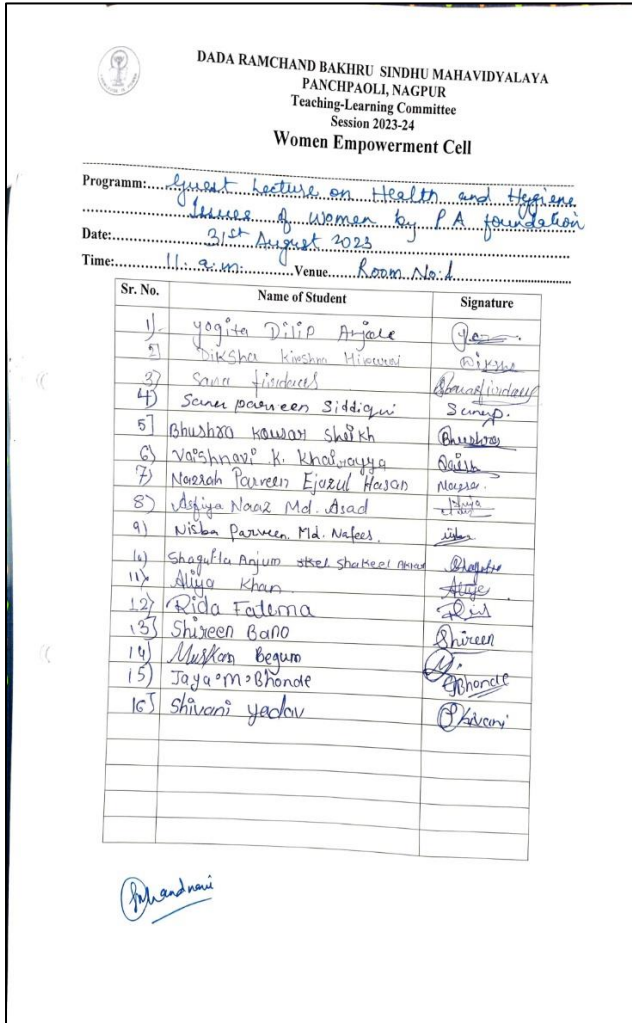 DADA RAMCHAND BAKHRU SINDHU MAHAVIDYALAYA
PANCHPAOLI, NAGPUR
Teaching-Learning Committee
Session 2023-24
Women Empowerment Cell
Programm: Guest Lecture on Health and Hygiene
Issues of Women by PA foundation
Date: 31st August 2023
Time: 11. a.m. Venue Room No:1
Sr. No. Name of Student Signature
1) Yogita Dilip
2] Diksha Diksha
3) Sana firdaus Sana firdaus
4) Saner parveen Siddiqui Sanerp.
5] Bhushra kowsar Sheikh Bhushra
6) Vaishnavi K. Khairayya
7) Nazrah Parveen Ejazul Hasan Nazra.
8) Asfiya Naaz Md. Asad
9) Nisba Parveen Md. Nafees.
10) Shagufta Anjum Shakeel
11) Aliya Khan. Aliya
12) Rida Fatema
13] Shireen Bano Shireen
14) Muskan Begum M.
15) Jaya.M.Bhonde JBhonde
16] Shivani Yadav Shivani